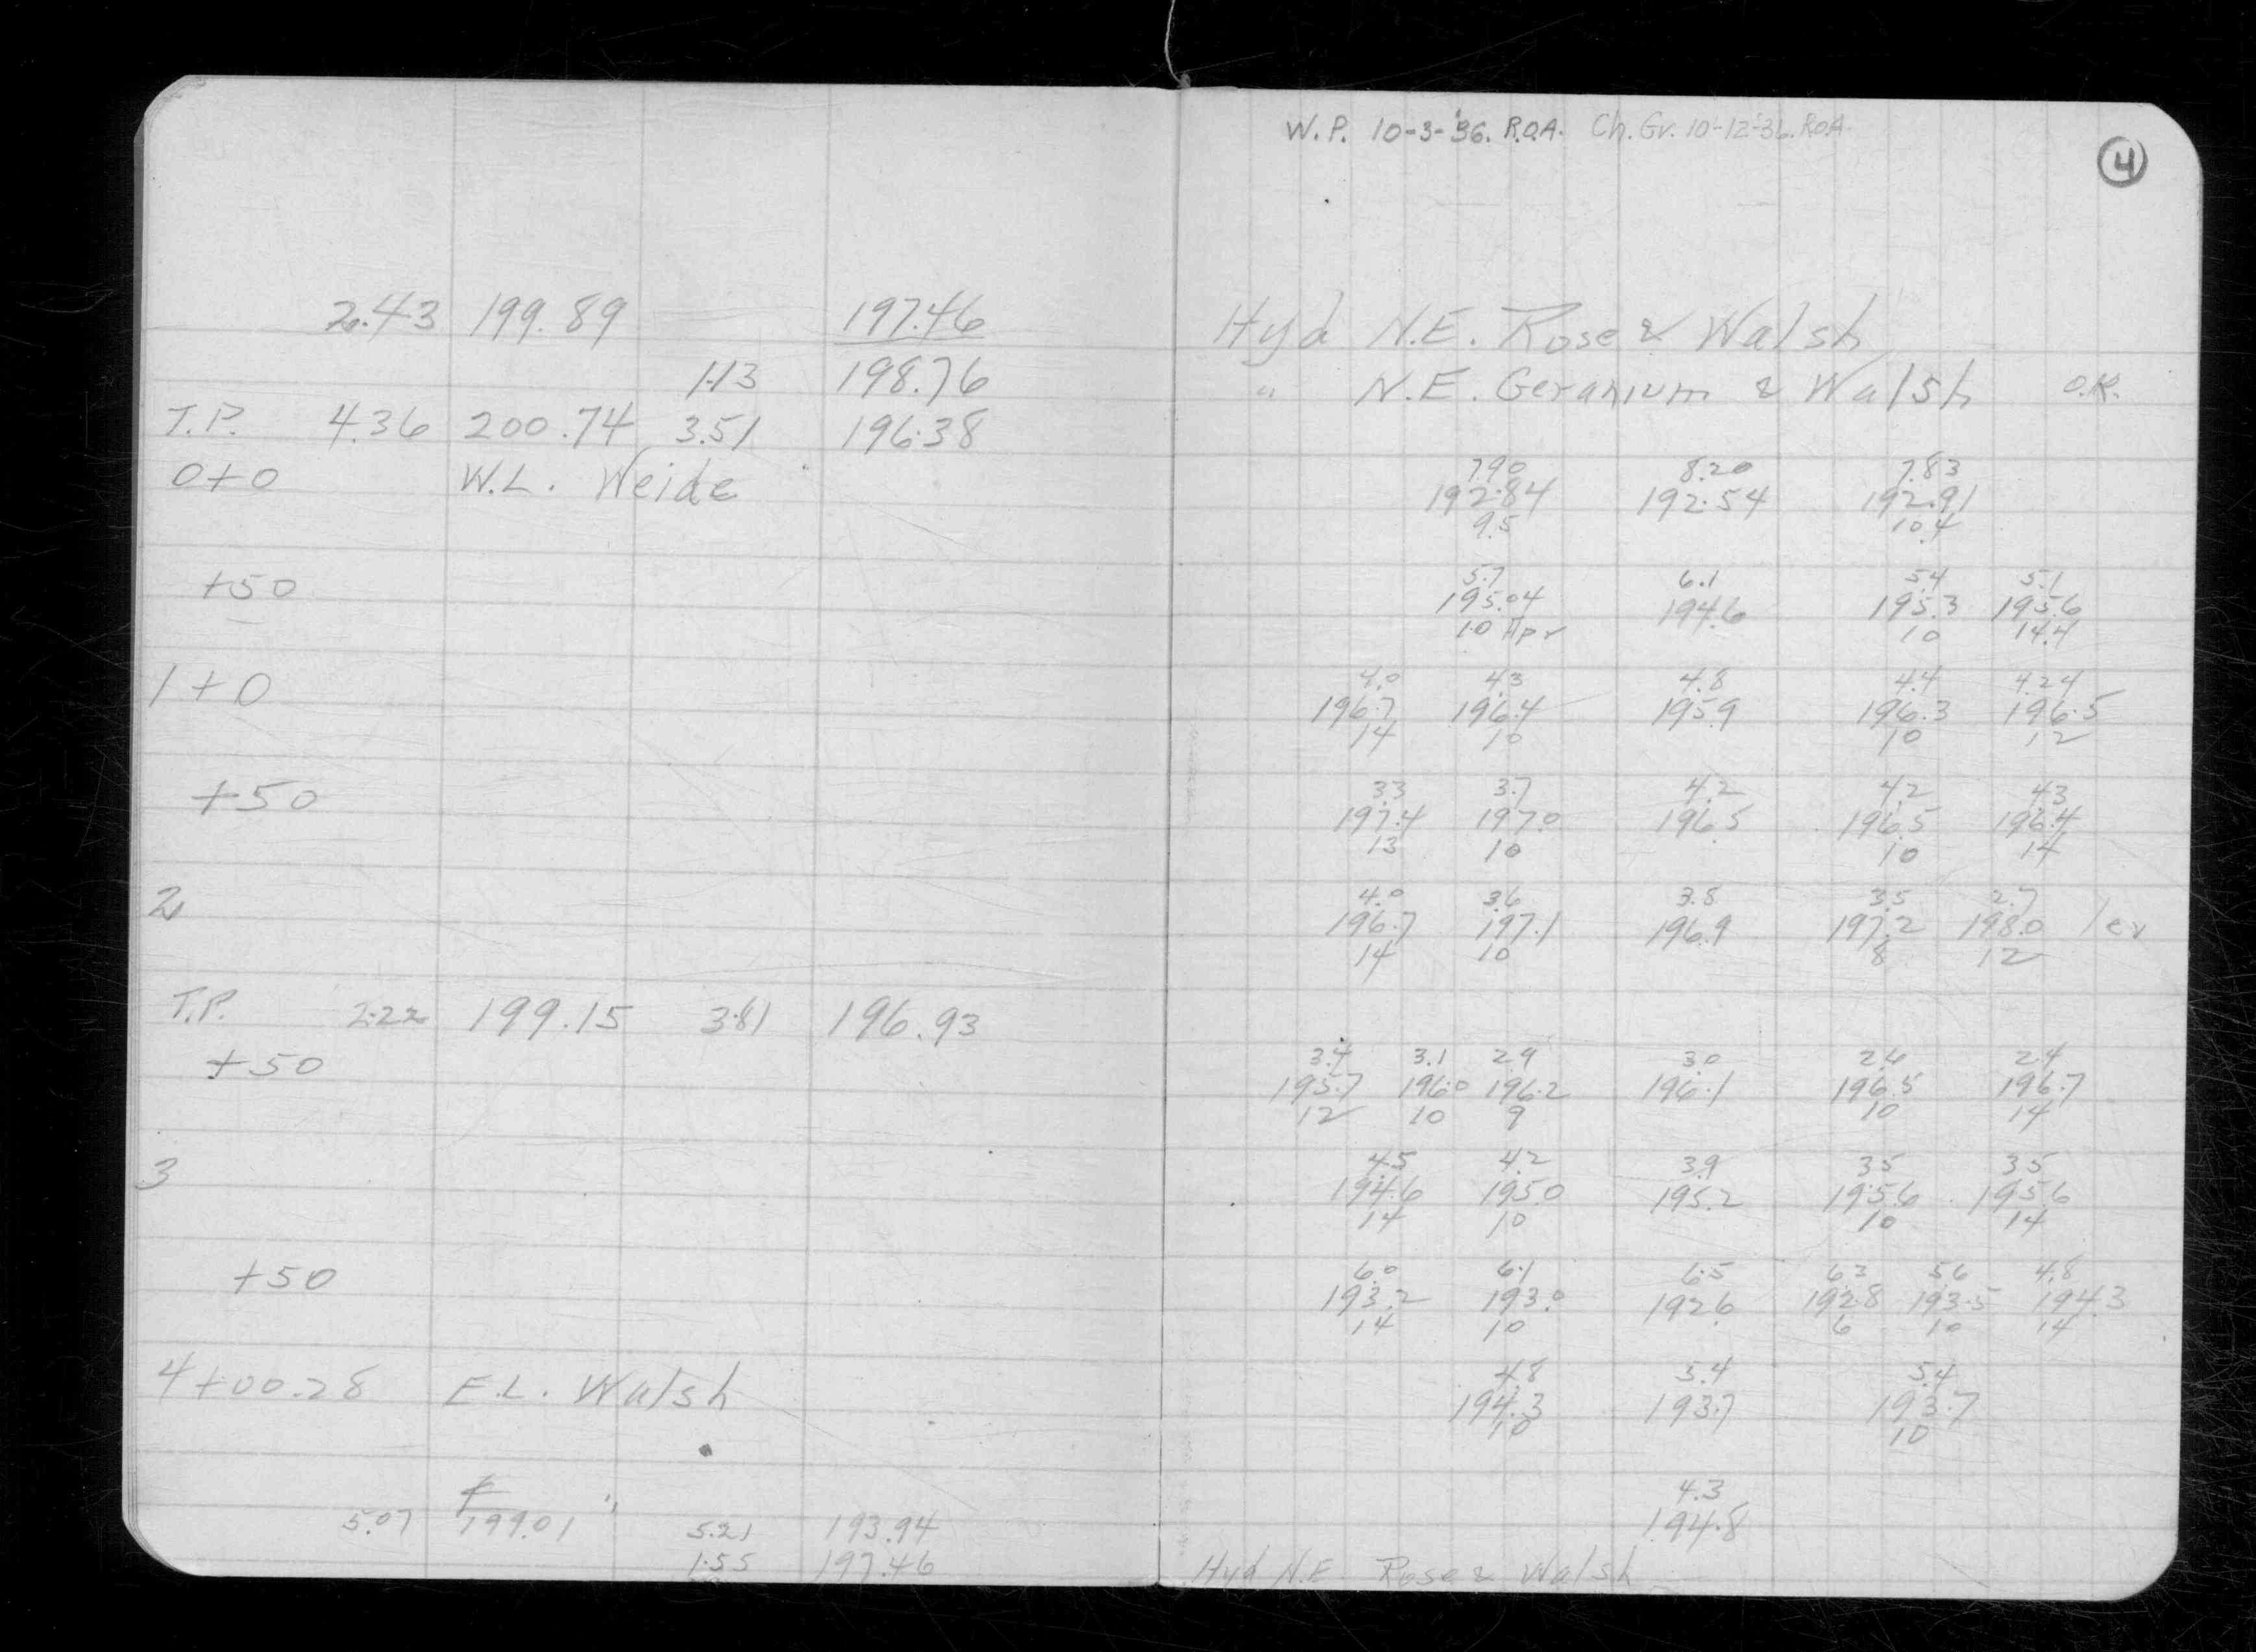 W.P. 10-3-'36. R.O.A. Ch. Gr. 10-12-36. R.O.A.
4
2.43 199.89 197.46 Hyd N.E. Rose & Walsh
1.13 198.76 " N.E. Geranium & Walsh O.K.
T.P. 4.36 200.74 3.51 196.38
0+0 W.L. Weide
7.90 8.20 7.83
192.84 192.54 192.91
9.5 10.4
+50
5.7 6.1 5.4 5.1
195.04 194.6 195.3 195.6
10 10 14.4
1+0
4.0 4.3 4.8 4.4 4.24
196.7 196.4 195.9 196.3 196.5
14 10 10 12
+50
3.3 3.7 4.2 4.2 4.3
197.4 197.0 196.5 196.5 196.4
13 10 10 14
2
4.0 3.6 3.8 3.5 2.7
196.7 197.1 196.9 197.2 198.0 lev
14 10 8 12
T.P. 2.22 199.15 3.81 196.93
+50
3.4 3.1 2.9 3.0 2.6 2.4
195.7 196.0 196.2 196.1 196.5 196.7
12 10 9 10 14
3
4.5 4.2 3.9 3.5 3.5
194.6 195.0 195.2 195.6 195.6
14 10 10 14
+50
6.0 6.1 6.5 6.3 5.6 4.8
193.2 193.0 192.6 192.8 193.5 194.3
14 10 6 10 14
4+00.28 E.L. Walsh
4.8 5.4 5.4
194.3 193.7 193.7
10 10
4.3
5.07 199.01 5.21 193.94 194.8
1.55 197.46 Hyd N.E. Rose & Walsh